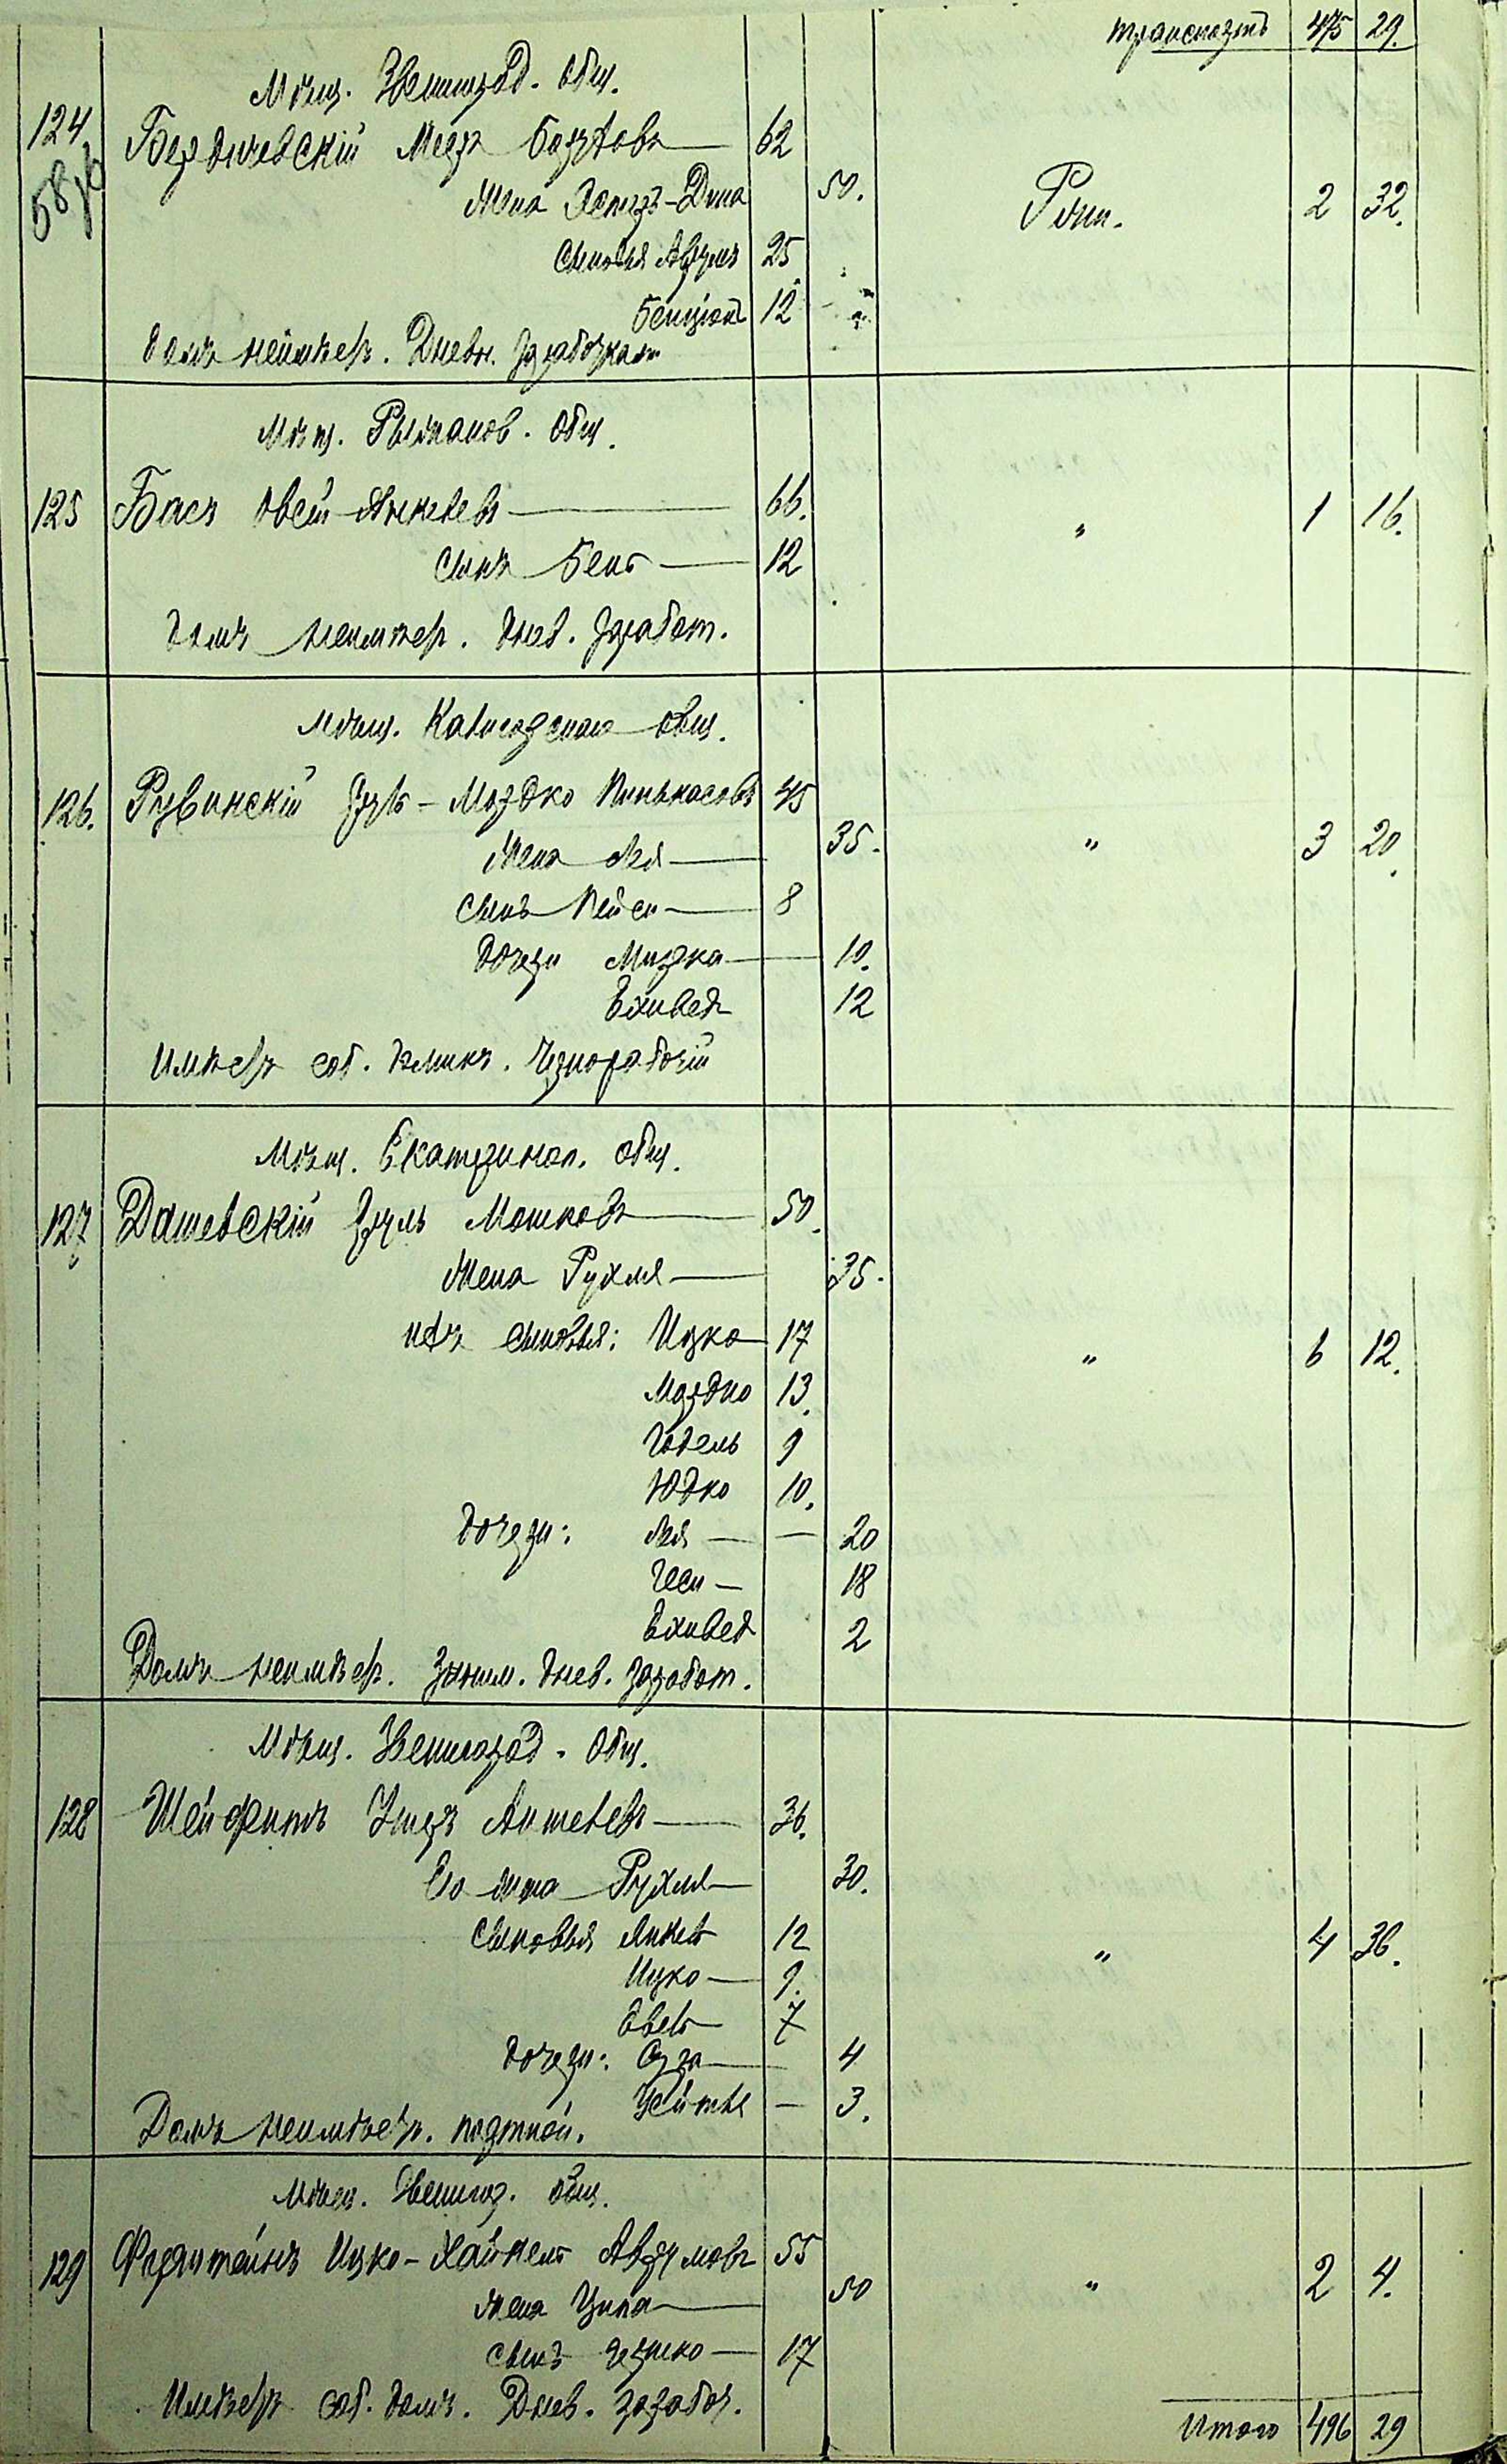 Транспортъ 475 29.
Мѣщ. Звенигород. общ.
124 Бердичевскій Меер Борухов 62
58 об
Жена Эстеръ-Дина 50. Рыж. 2 32.
Сыновья Аврумъ 25
Бенціонъ 12
домъ неимѣетъ. Дневн. заработкам
Мѣщ. Рыжанов. общ.
125 Басъ Овсей Янкелевъ 66. " 1 16.
сынъ Бенъ 12
домъ неимѣетъ. днев. заработ.
мѣщ. общ.
126. Рувинскій Сруль-Мордко Пинькасовъ 45
Жена Лея 35. " 3 20.
сынъ Пейси 8
дочери Мирка 10.
Ехивед 12
Имѣетъ соб. домикъ. Чернорабочій
Мѣщ. Екатериноп. общ.
127 Дашевскій Сруль Мошковъ 50.
Жена Рухля 35.
ихъ сыновья: Ицко 17 " 6 12.
Мордко 13.
Годель 9
Юдко 10.
дочери: Лея 20
Геси 18
Ехивед 2
Домъ неимѣетъ. Заним. днев. заработ.
Мѣщ. Звенигород. Общ.
128 Шейфитъ Ушеръ Аншелевъ 36.
Его жена Рухля 30.
Сыновья Янкель 12 " 4 36.
Ицко 9.
7
дочери: Сура 4
3.
Домъ неимѣетъ. портной.
мѣщ. Звенигор. общ.
129 Ицко-Хайкель Аврумовъ 55 " 2 4.
жена Ципа 50
сынъ Гершко 17
Имѣетъ соб. домъ. Днев. заработ.
Итого 496 29